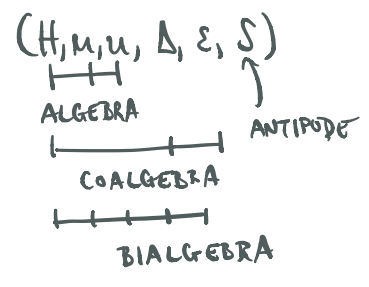 (H, μ, u, Δ, ε, S)
ALGEBRA
ANTIPODE
COALGEBRA
BIALGEBRA